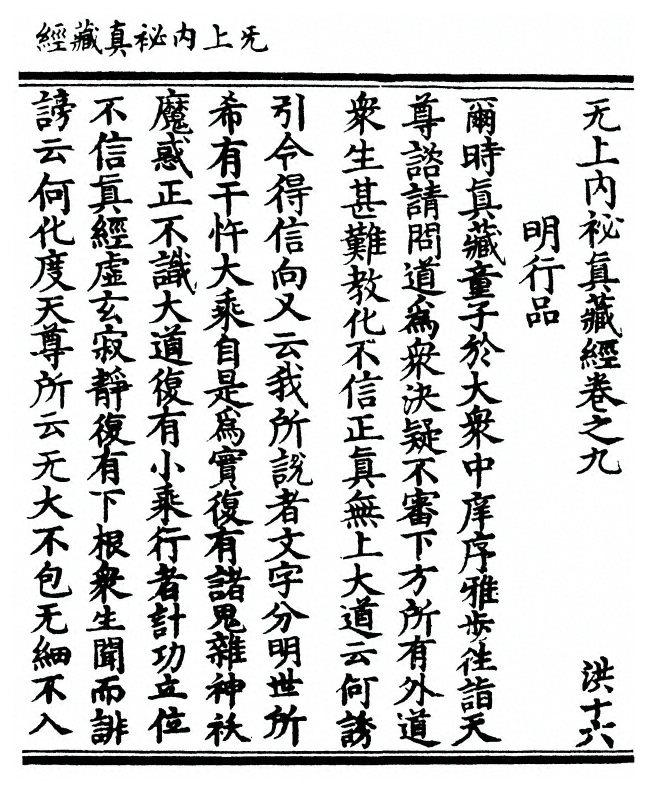 无上內祕真藏經
无上內祕眞藏經卷之九 洪十六
明行品
爾時眞藏童子於大衆中庠序雅步徃詣天
尊諮請問道爲衆決疑不審下方所有外道
衆生甚難教化不信正眞無上大道云何誘
引令得信向又云我所說者文字分明世所
希有干忤大乘自是爲實復有諸鬼雜神祅
魔惑正不識大道復有小乘行者計功立位
不信眞經虛玄寂靜復有下根衆生聞而誹
謗云何化度天尊所云无大不包无細不入